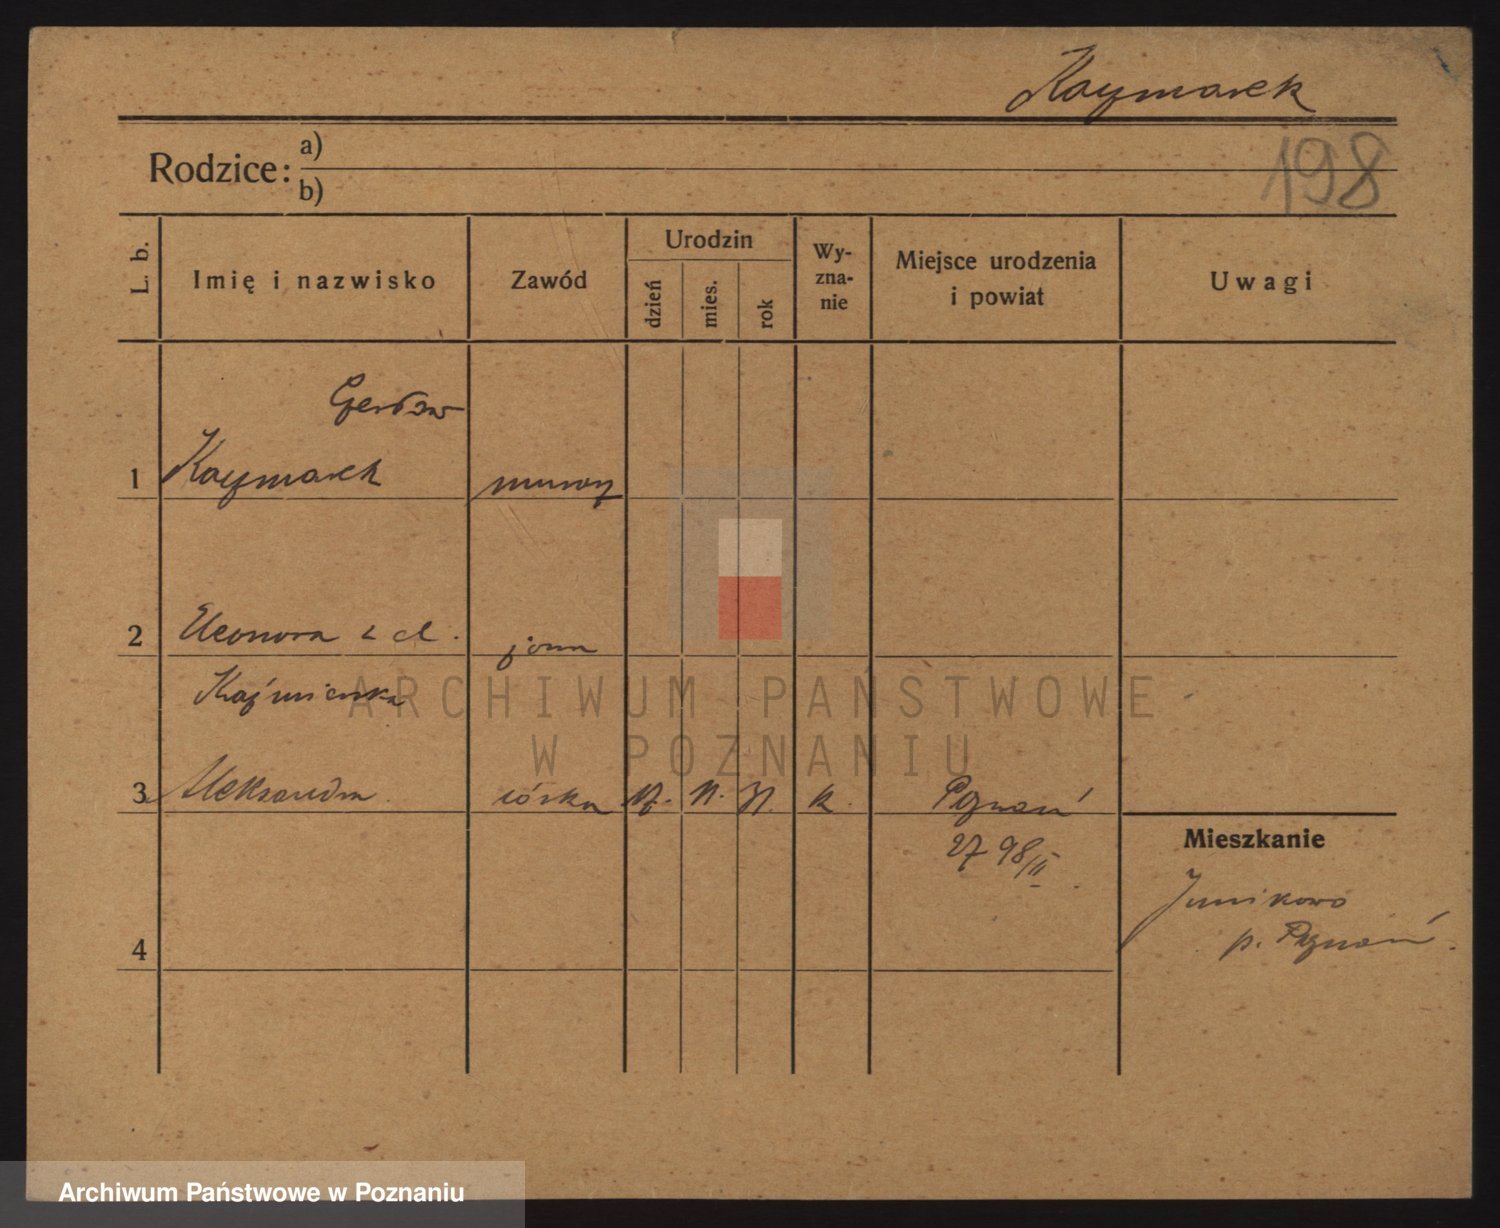 Kaczmarek
198
Rodzice: a)
b)
L. b.
Imię i nazwisko
Zawód
Urodzin
dzień
mies.
rok
Wy-
zna-
nie
Miejsce urodzenia
i powiat
Uwagi
1 Kaczmarek murarz
2 Eleonora z d. żona
Kaźmierska
3 Aleksandra córka 17. 11. 31. k. Poznań
Mieszkanie
Junikowo
p. Poznań
4
ARCHIWUM PAŃSTWOWE
W POZNANIU
Archiwum Państwowe w Poznaniu